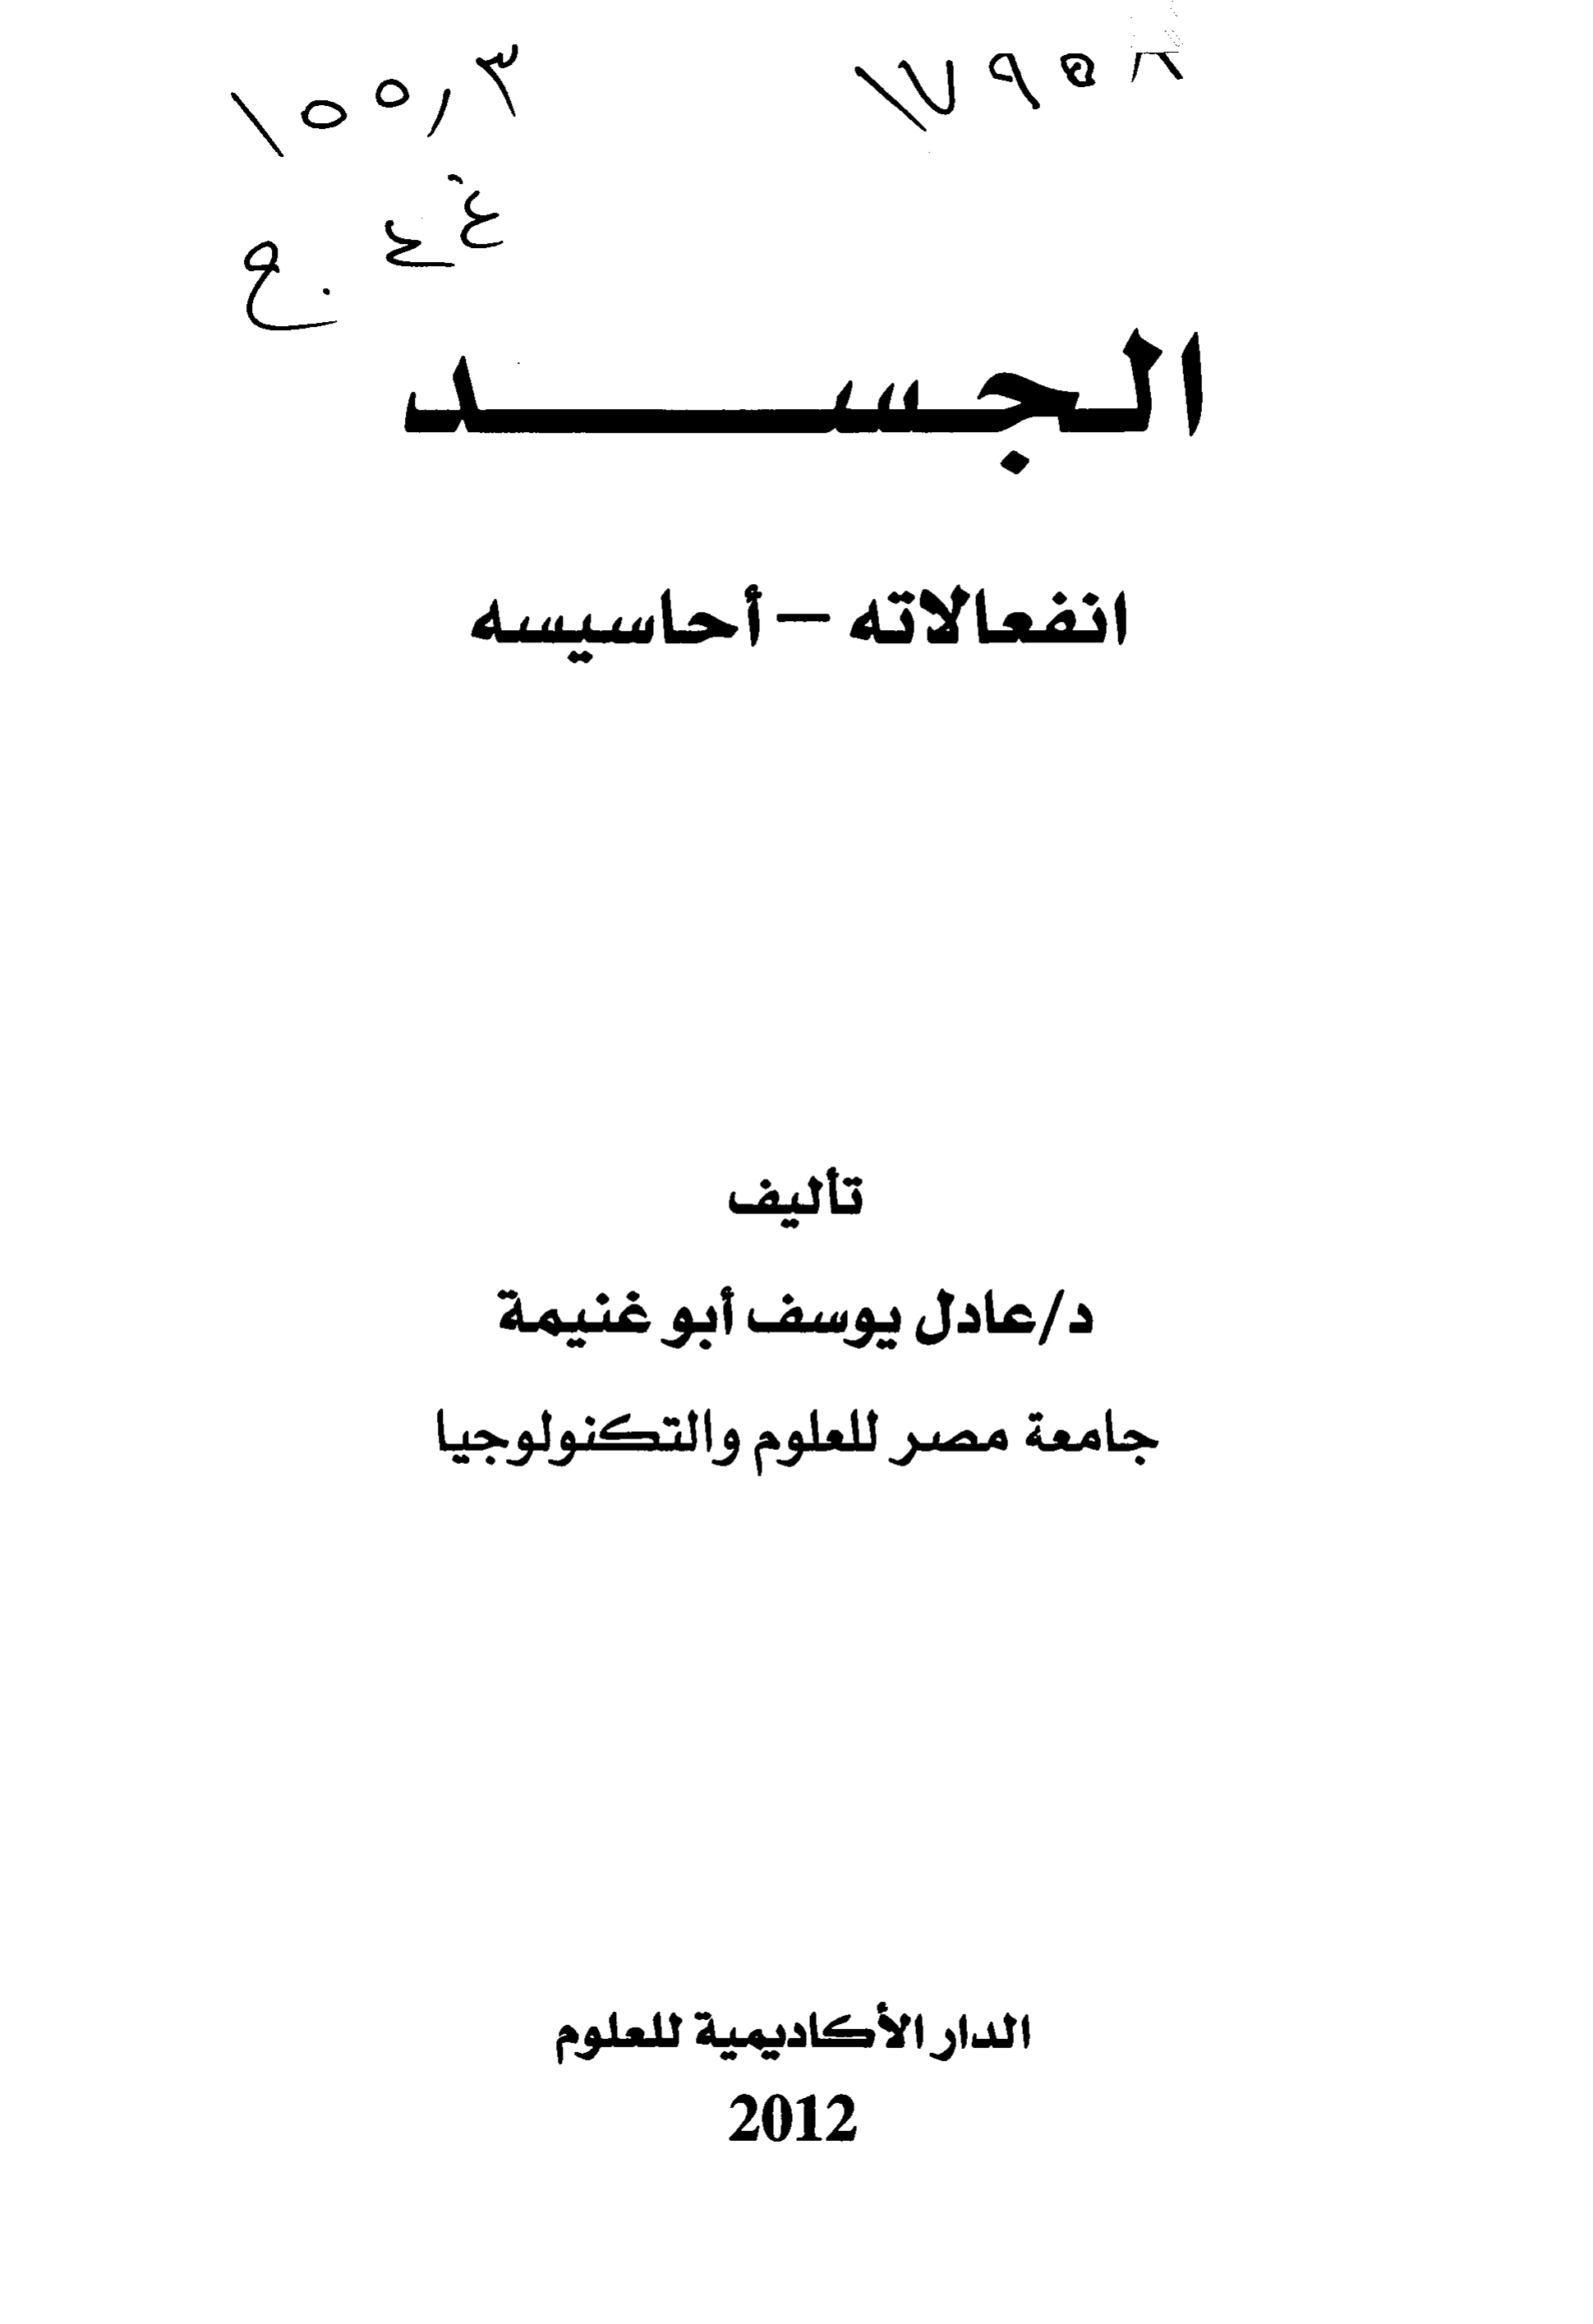 ١٧٩٥٨
١٥٥,٣
الجســـــد
انفعالاته – أحاسيسه
تأليف
د/عادل يوسف أبو غنيمة
جامعة مصر للعلوم والتكنولوجيا
الدار الأكاديمية للعلوم
2012